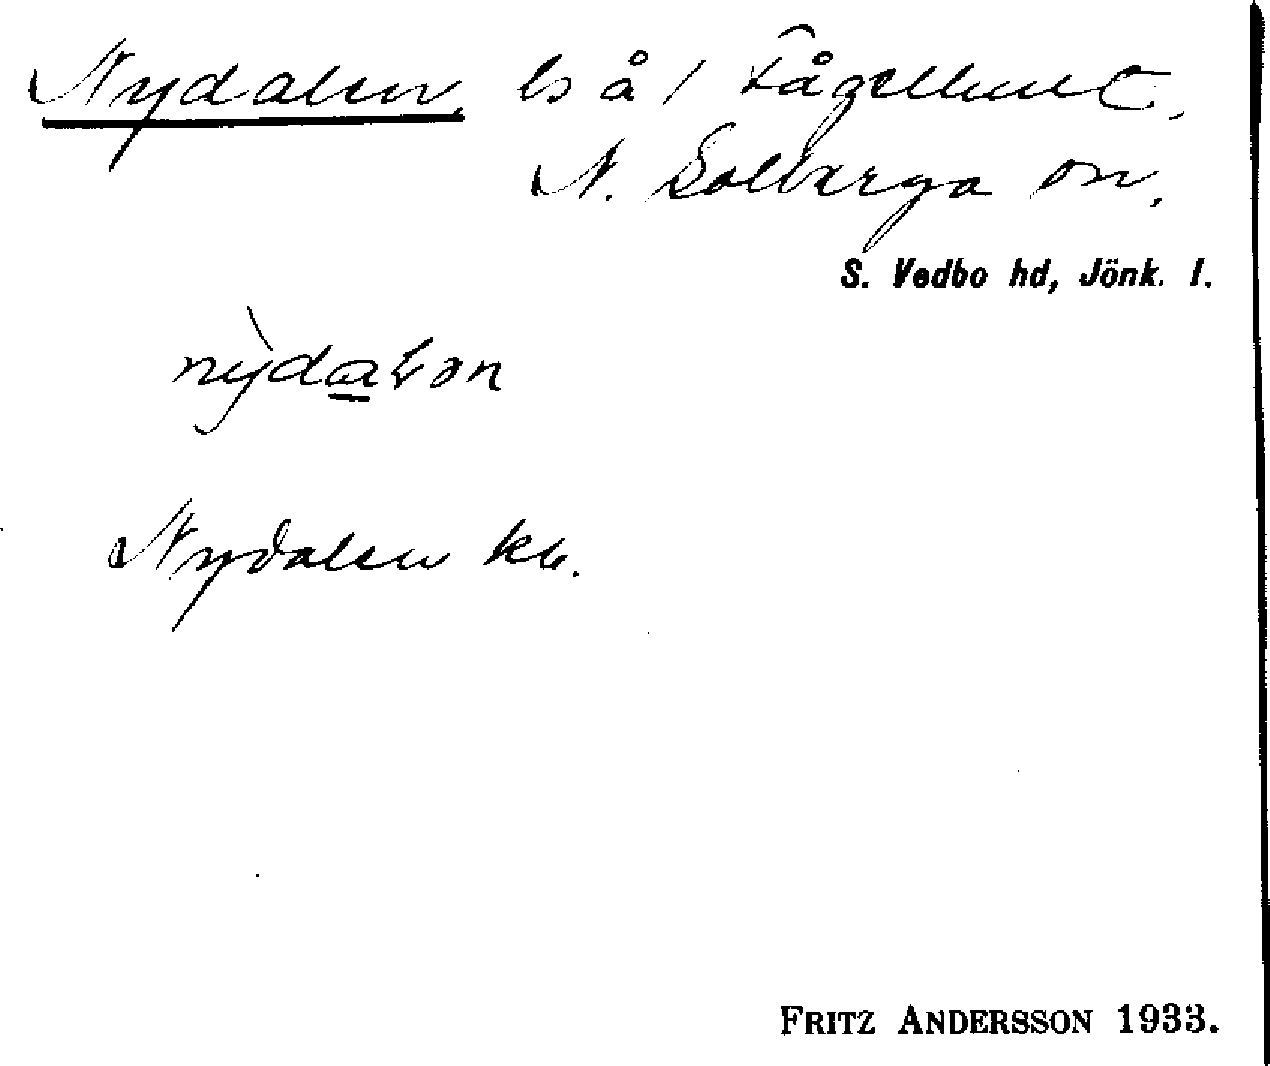 Nydalen, ls å / Fågelhult,
N. Solberga sn,
S. Vedbo hd, Jönk. l.
nỳdaɫən
Nydalen kb.
FRITZ ANDERSSON 1933.